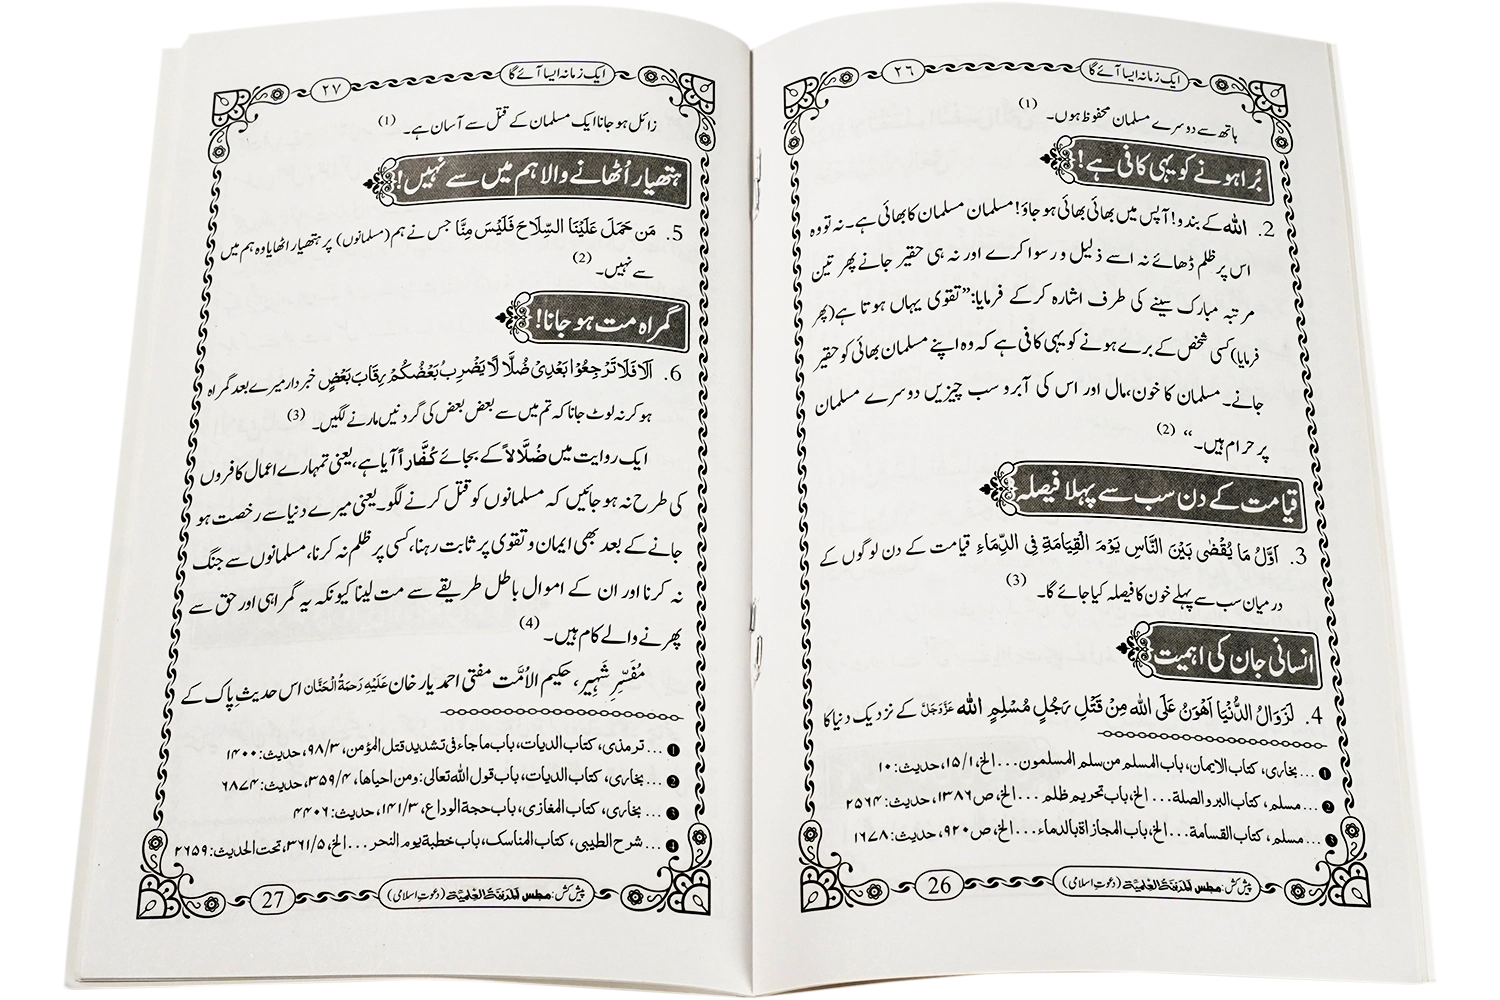 ایک زمانہ ایسا آئے گا
٢٦
ہاتھ سے دوسرے مسلمان محفوظ ہوں۔ (1)
بُرا ہونے کو یہی کافی ہے!
2. اللہ کے بندو! آپس میں بھائی بھائی ہو جاؤ! مسلمان مسلمان کا بھائی ہے۔ نہ تو وہ
اس پر ظلم ڈھائے نہ اسے ذلیل و رسوا کرے اور نہ ہی حقیر جانے پھر تین
مرتبہ مبارک سینے کی طرف اشارہ کرکے فرمایا: ”تقوی یہاں ہوتا ہے (پھر
فرمایا) کسی شخص کے برے ہونے کو یہی کافی ہے کہ وہ اپنے مسلمان بھائی کو حقیر
جانے۔ مسلمان کا خون، مال اور اس کی آبرو سب چیزیں دوسرے مسلمان
پر حرام ہیں۔“ (2)
قیامت کے دن سب سے پہلا فیصلہ
3. اَوَّلُ مَا يُقْضٰى بَيْنَ النَّاسِ يَوْمَ الْقِيَامَةِ فِى الدِّمَاءِ قیامت کے دن لوگوں کے
درمیان سب سے پہلے خون کا فیصلہ کیا جائے گا۔ (3)
انسانی جان کی اہمیت
4. لَزَوَالُ الدُّنْيَا اَهْوَنُ عَلَى اللهِ مِنْ قَتْلِ رَجُلٍ مُسْلِمٍ اللہ عَزَّوَجَلَّ کے نزدیک دنیا کا
❶ ... بخاری، کتاب الایمان، باب المسلم من سلم المسلمون ... الخ، ١/١٥، حدیث: ١٠
❷ ... مسلم، کتاب البر والصلة ... الخ، باب تحریم ظلم ... الخ، ص ١٣٨٦، حدیث: ٢٥٦٤
❸ ... مسلم، کتاب القسامة ... الخ، باب المجازاة بالدماء ... الخ، ص ٩٢٠، حدیث: ١٦٧٨
پیش کش: مجلس المدینۃ العلمیۃ (دعوتِ اسلامی)
26
ایک زمانہ ایسا آئے گا
٢٧
زائل ہو جانا ایک مسلمان کے قتل سے آسان ہے۔ (1)
ہتھیار اُٹھانے والا ہم میں سے نہیں!
5. مَن حَمَلَ عَلَيْنَا السِّلَاحَ فَلَيْسَ مِنَّا جس نے ہم (مسلمانوں) پر ہتھیار اٹھایا وہ ہم میں
سے نہیں۔ (2)
گمراہ مت ہو جانا!
6. اَلَا فَلَا تَرْجِعُوْا بَعْدِىْ ضُلَّالًا يَضْرِبُ بَعْضُكُمْ رِقَابَ بَعْضٍ خبردار میرے بعد گمراہ
ہو کر نہ لوٹ جانا کہ تم میں سے بعض بعض کی گردنیں مارنے لگیں۔ (3)
ایک روایت میں ضُلَّالاً کے بجائے کُفَّاراً آیا ہے، یعنی تمہارے اعمال کافروں
کی طرح نہ ہو جائیں کہ مسلمانوں کو قتل کرنے لگو۔ یعنی میرے دنیا سے رخصت ہو
جانے کے بعد بھی ایمان و تقوی پر ثابت رہنا، کسی پر ظلم نہ کرنا، مسلمانوں سے جنگ
نہ کرنا اور ان کے اموال باطل طریقے سے مت لینا کیونکہ یہ گمراہی اور حق سے
پھرنے والے کام ہیں۔ (4)
مُفَسِّرِ شہیر، حکیم الاُمَّت مفتی احمد یار خان عَلَیْہِ رَحْمَۃُ الْحَنَّان اس حدیثِ پاک کے
❶ ... ترمذی، کتاب الدیات، باب ماجاء فی تشدید قتل المؤمن، ٣/٩٨، حدیث: ١٤٠٠
❷ ... بخاری، کتاب الدیات، باب قول اللہ تعالی: ومن احیاھا، ٤/٣٥٩، حدیث: ٦٨٧٤
❸ ... بخاری، کتاب المغازی، باب حجة الوداع، ٣/١٤١، حدیث: ٤٤٠٦
❹ ... شرح الطیبی، کتاب المناسک، باب خطبة یوم النحر ... الخ، ٥/٣٦١، تحت الحدیث: ٢٦٥٩
پیش کش: مجلس المدینۃ العلمیۃ (دعوتِ اسلامی)
27